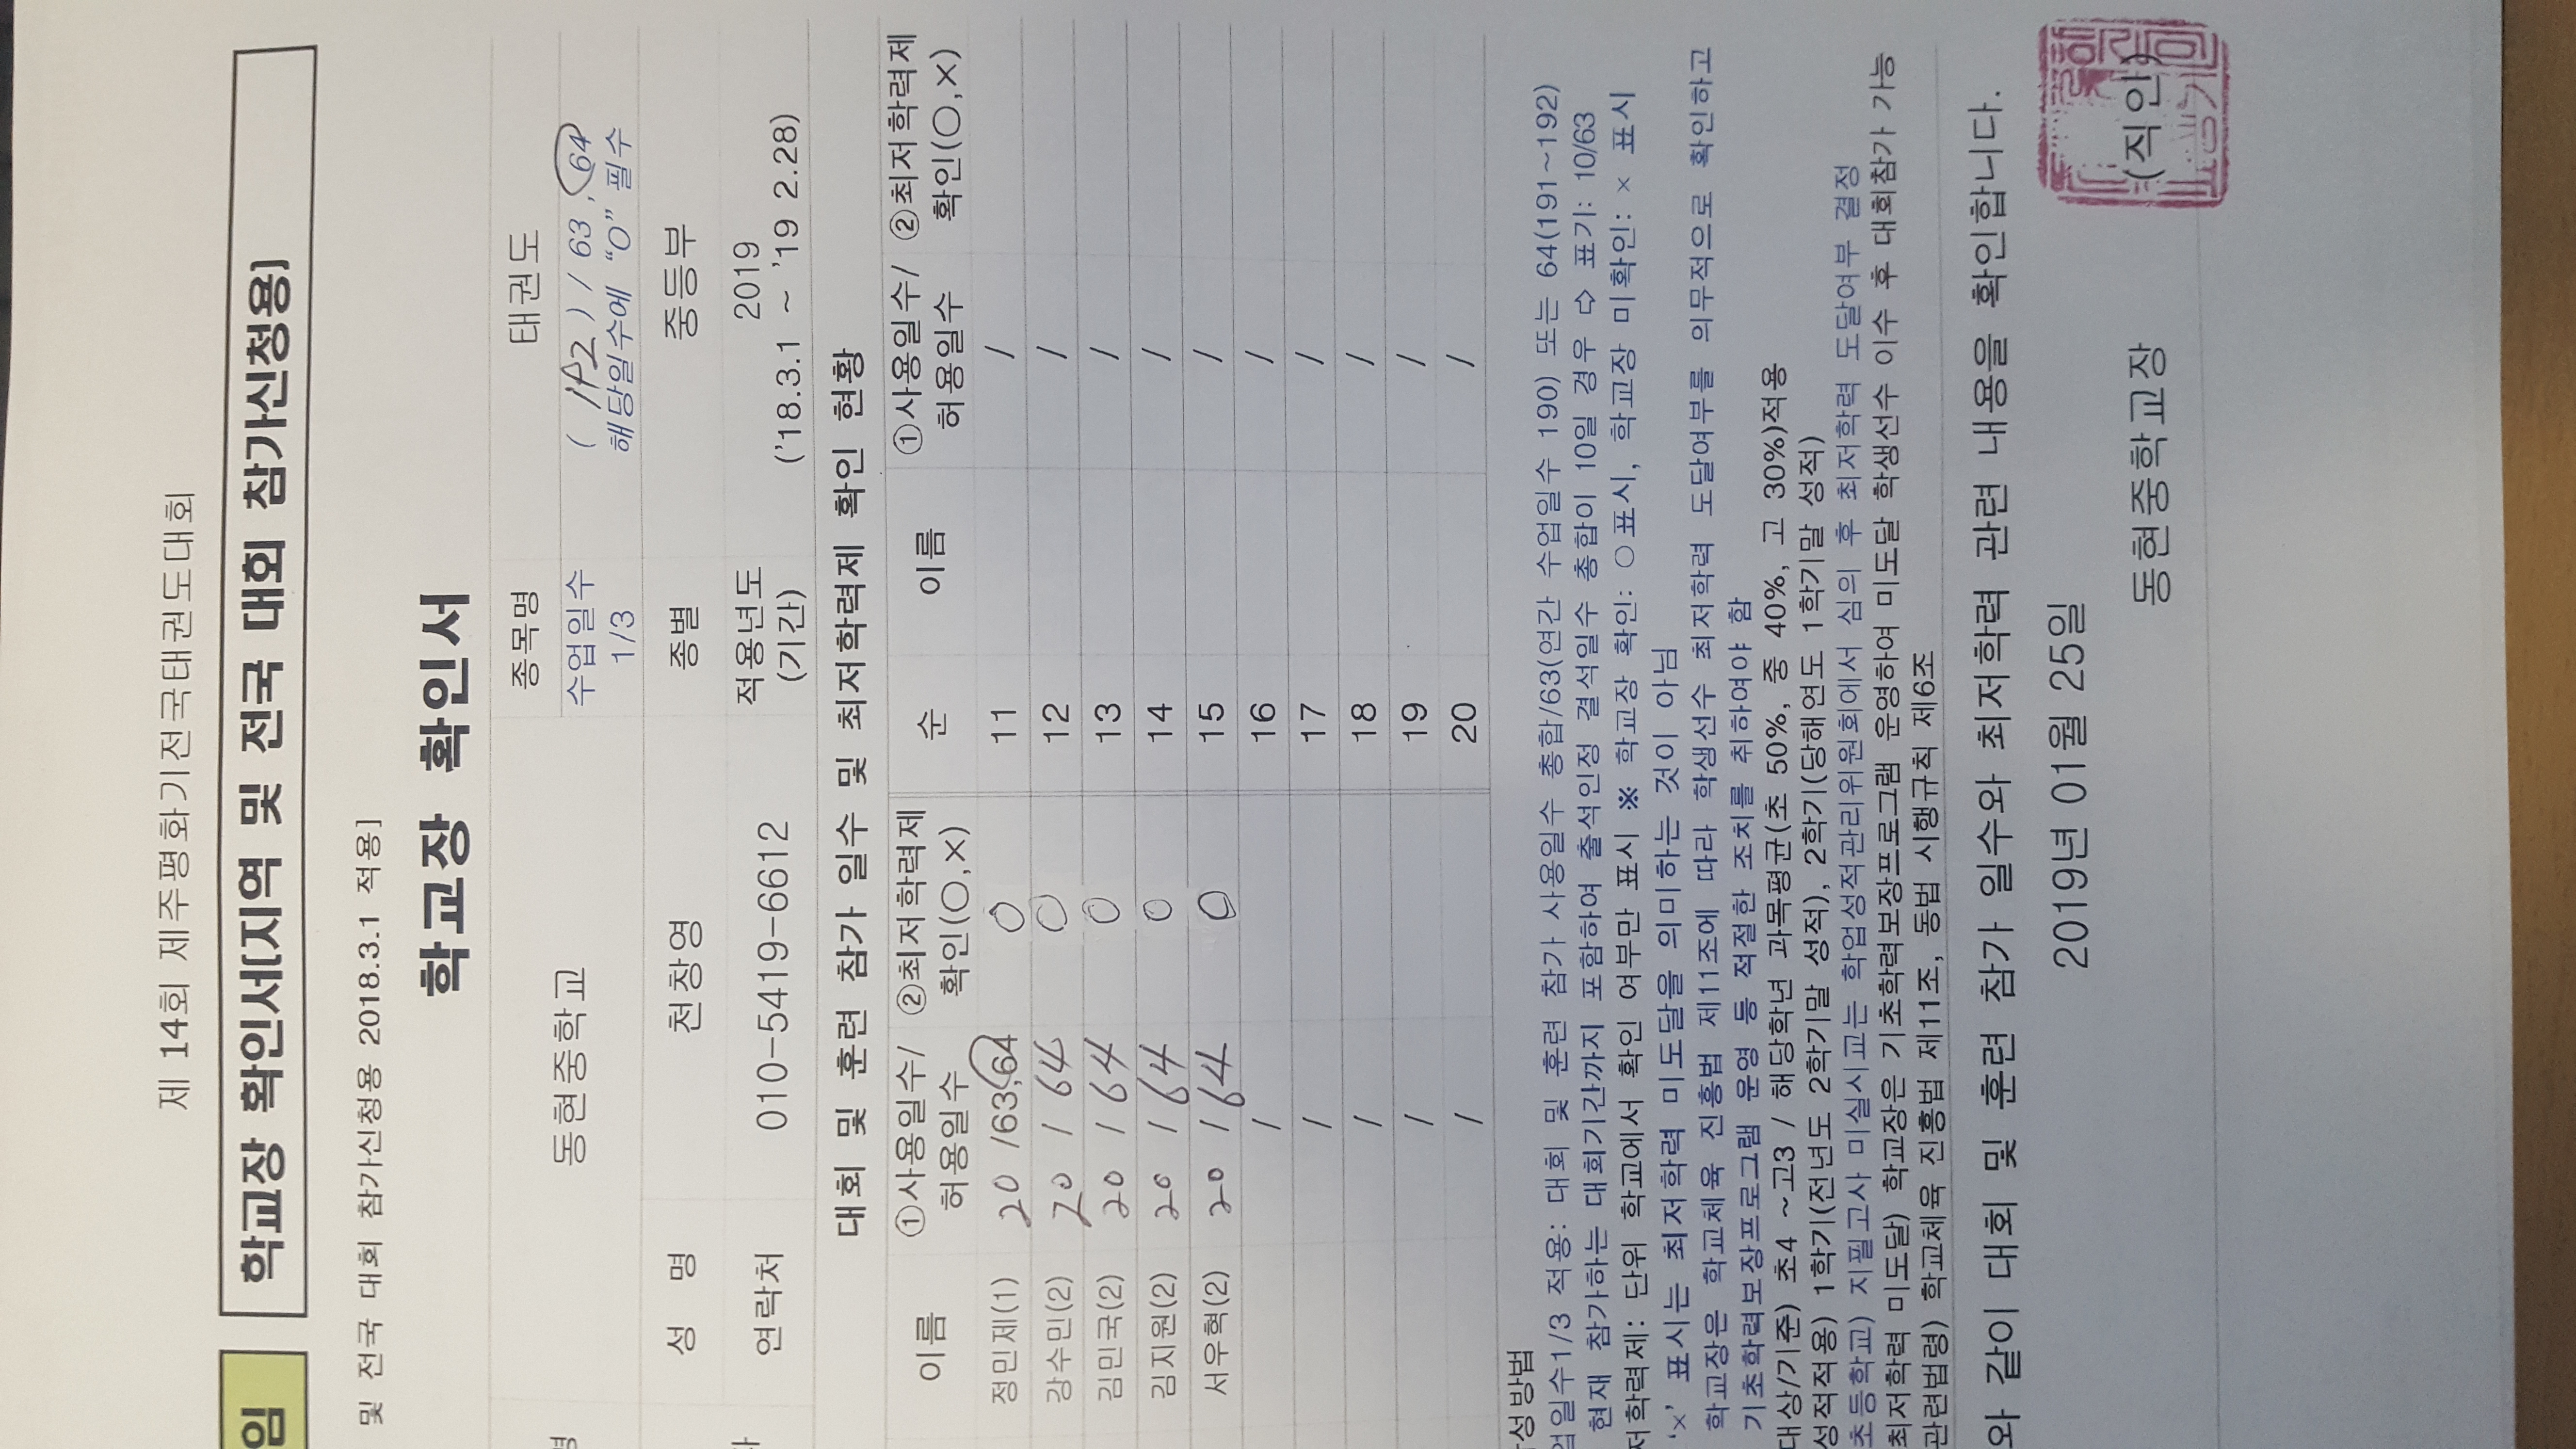 제 14회 제주평화기전국태권도대회
임 학교장 확인서[지역 및 전국 대회 참가신청용]
및 전국 대회 참가신청용 2018.3.1 적용]
학교장 확인서
명 동현중학교 종목명 태권도
수업일수 1/3 ( 192 ) / 63 , 64
해당일수에 "O" 필수
성 명 천창영 종별 중등부
연락처 010-5419-6612 적용년도 (기간) 2019
('18.3.1 ~ '19 2.28)
대회 및 훈련 참가 일수 및 최저학력제 확인 현황
이름 ①사용일수/허용일수 ②최저학력제 확인(○,×) 순 이름 ①사용일수/허용일수 ②최저학력제 확인(○,×)
정민제(1) 20 /63,64 ○ 11 /
강수민(2) 20 / 64 ○ 12 /
김민국(2) 20 / 64 ○ 13 /
김지원(2) 20 / 64 ○ 14 /
서우혁(2) 20 / 64 ○ 15 /
/ 16 /
/ 17 /
/ 18 /
/ 19 /
/ 20 /
성방법
업일수1/3 적용: 대회 및 훈련 참가 사용일수 총합/63(연간 수업일수 190) 또는 64(191~192)
현재 참가하는 대회기간까지 포함하여 출석인정 결석일수 총합이 10일 경우 ⇨ 표기: 10/63
저학력제: 단위 학교에서 확인 여부만 표시 ※ 학교장 확인: ○표시, 학교장 미확인: × 표시
'×' 표시는 최저학력 미도달을 의미하는 것이 아님
학교장은 학교체육 진흥법 제11조에 따라 학생선수 최저학력 도달여부를 의무적으로 확인하고
기초학력보장프로그램 운영 등 적절한 조치를 취하여야 함
대상/기준) 초4 ~고3 / 해당학년 과목평균(초 50%, 중 40%, 고 30%)적용
성적적용) 1학기(전년도 2학기말 성적), 2학기(당해연도 1학기말 성적)
초등학교) 지필고사 미실시교는 학업성적관리위원회에서 심의 후 최저학력 도달여부 결정
최저학력 미도달) 학교장은 기초학력보장프로그램 운영하여 미도달 학생선수 이수 후 대회참가 가능
관련법령) 학교체육 진흥법 제11조, 동법 시행규칙 제6조
와 같이 대회 및 훈련 참가 일수와 최저학력 관련 내용을 확인합니다.
2019년 01월 25일
동현중학교장 (직인)